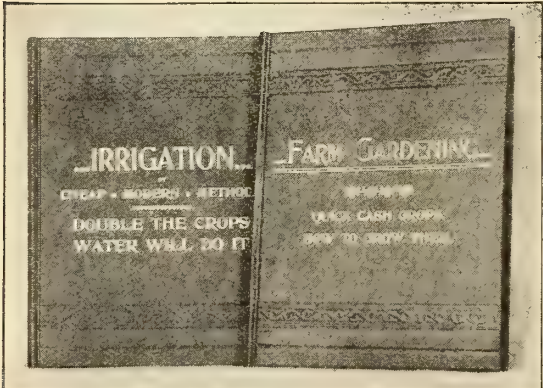 IRRIGATION
CHEAP • MODERN • METHOD
DOUBLE THE CROPS
WATER WILL DO IT
FARM GARDENING
QUICK CASH CROPS
HOW TO GROW THEM